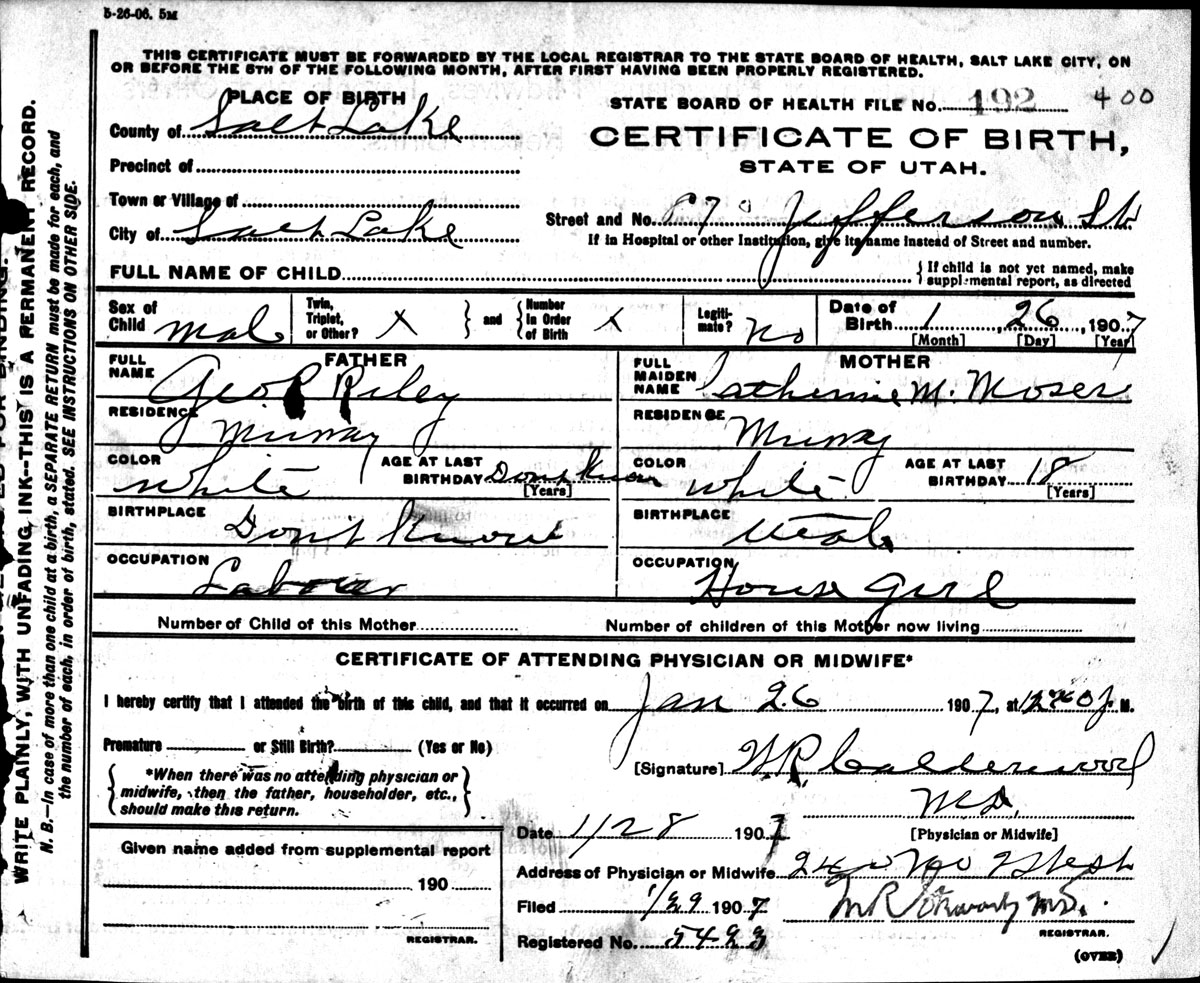 5-26-06. 5M
THIS CERTIFICATE MUST BE FORWARDED BY THE LOCAL REGISTRAR TO THE STATE BOARD OF HEALTH, SALT LAKE CITY, ON
OR BEFORE THE 5TH OF THE FOLLOWING MONTH, AFTER FIRST HAVING BEEN PROPERLY REGISTERED.
PLACE OF BIRTH
STATE BOARD OF HEALTH FILE No. 192 400
County of Salt Lake
CERTIFICATE OF BIRTH,
STATE OF UTAH.
Precinct of
Town or Village of
Street and No. Jefferson St
City of Salt Lake
If in Hospital or other Institution, give its name instead of Street and number.
FULL NAME OF CHILD
{ If child is not yet named, make
supplemental report, as directed
Sex of Child Mal
Twin, Triplet, or Other? X } and { Number in Order of Birth X
Legiti-mate? No
Date of Birth 1, 26, 1907
[Month] [Day] [Year]
FATHER
MOTHER
FULL NAME Geo Riley
FULL MAIDEN NAME Catherine M. Moser
RESIDENCE Murray
RESIDENCE Murray
COLOR White AGE AT LAST BIRTHDAY Dont Know [Years]
COLOR White AGE AT LAST BIRTHDAY 18 [Years]
BIRTHPLACE Dont Know
BIRTHPLACE Utah
OCCUPATION Laborer
OCCUPATION House Girl
Number of Child of this Mother
Number of children of this Mother now living
CERTIFICATE OF ATTENDING PHYSICIAN OR MIDWIFE*
I hereby certify that I attended the birth of this child, and that it occurred on Jan 26 1907, at M.
Premature or Still Birth? (Yes or No)
[Signature] W.R. Calderwood
M.D.
[Physician or Midwife]
{ *When there was no attending physician or
midwife, then the father, householder, etc.,
should make this return. }
Date 1/28 1907
Given name added from supplemental report
190
REGISTRAR.
Address of Physician or Midwife
Filed 1/29 1907
M.D.
REGISTRAR.
Registered No. 5423
(OVER)
WRITE PLAINLY, WITH UNFADING INK--THIS IS A PERMANENT RECORD.
N. B.—In case of more than one child at a birth, a SEPARATE RETURN must be made for each, and
the number of each, in order of birth, stated. SEE INSTRUCTIONS ON OTHER SIDE.